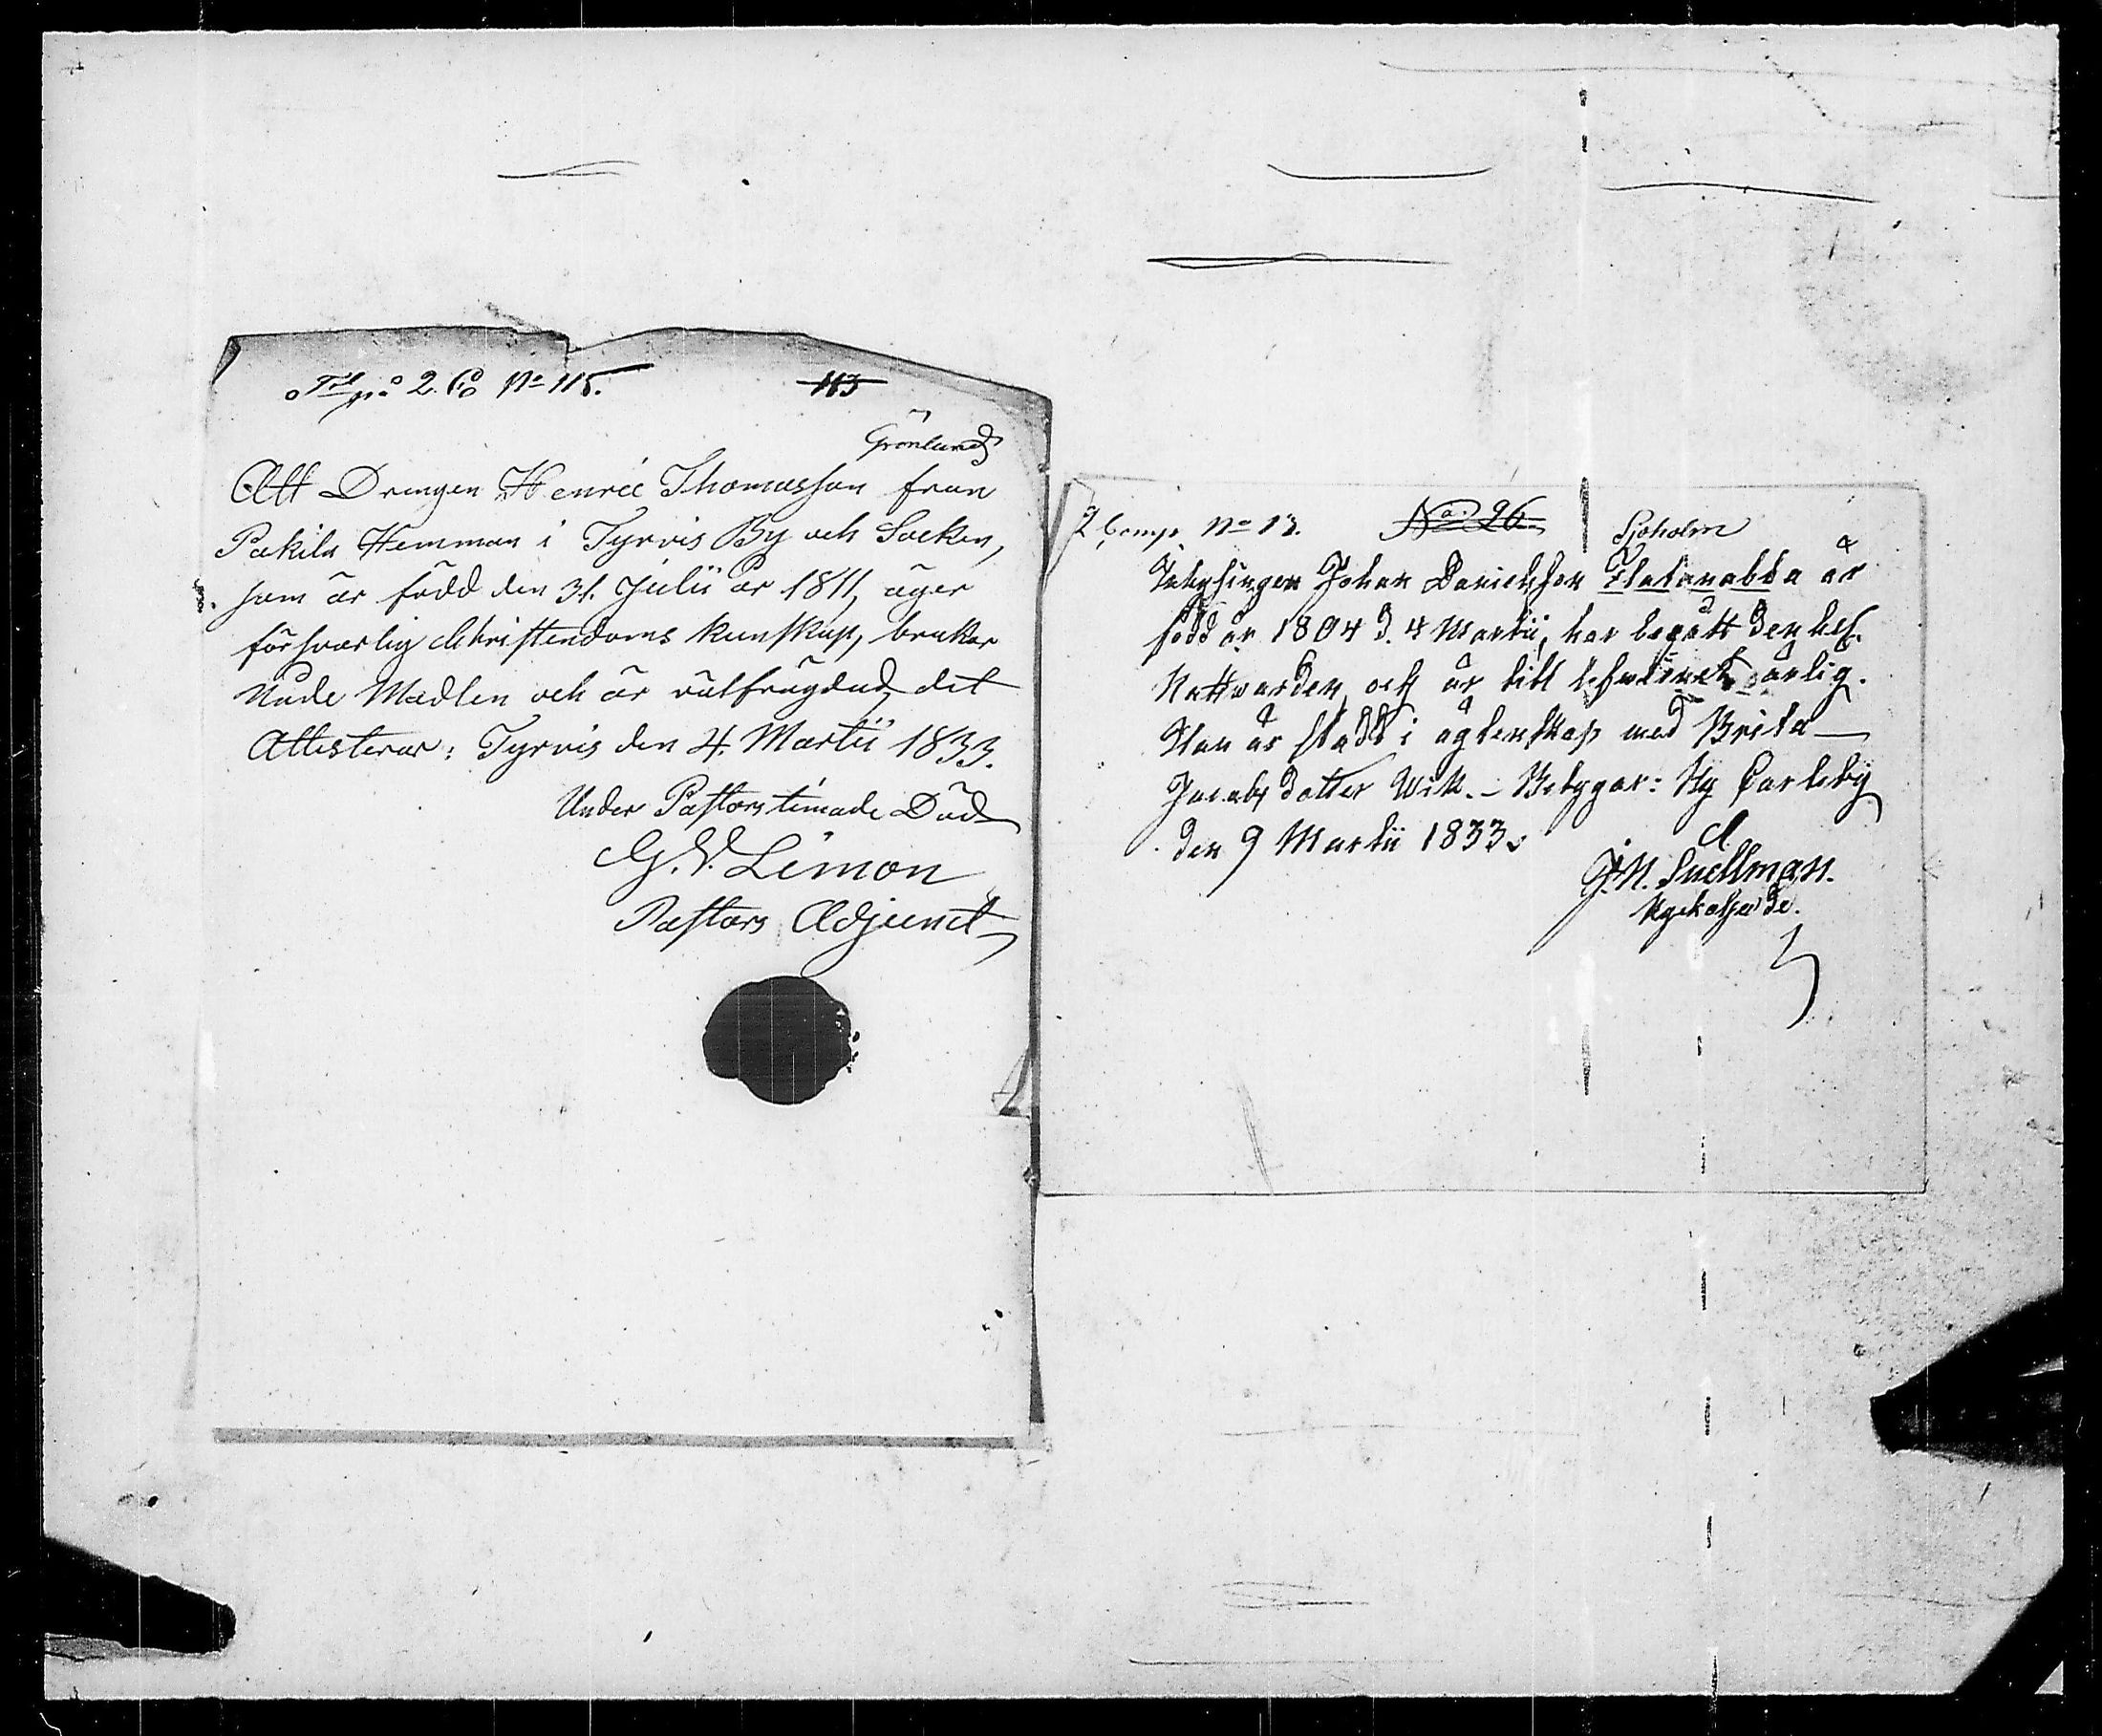 2. Co No 115.
113
Grönlund
Att Drengen Henric Thomasson från
Pakila Hemman i Tyrvis By och Socken,
som är född den 31. Julii år 1811, äger
försvarlig Christendoms kunskap, brukar
Nåde Medlen och är välfrägdad, det
Attesterar: Tyrvis den 4. Martii 1833.
Under Pastors timade Död
G. V. Limon
Pastors Adjunct
2 Comp. No 13.
No. 26.
Sjöholm
Inhysingen Johan Danielsson är
född år 1804 d. 4 Martii, har begått den hel.
Nattwarden och är till lefwernet ärlig.
Han är stadd i ägtenskap med Brita
Jacobsdotter Wik. – Betygar: Ny Carleby
den 9 Martii 1833.
J. N. Snellman.